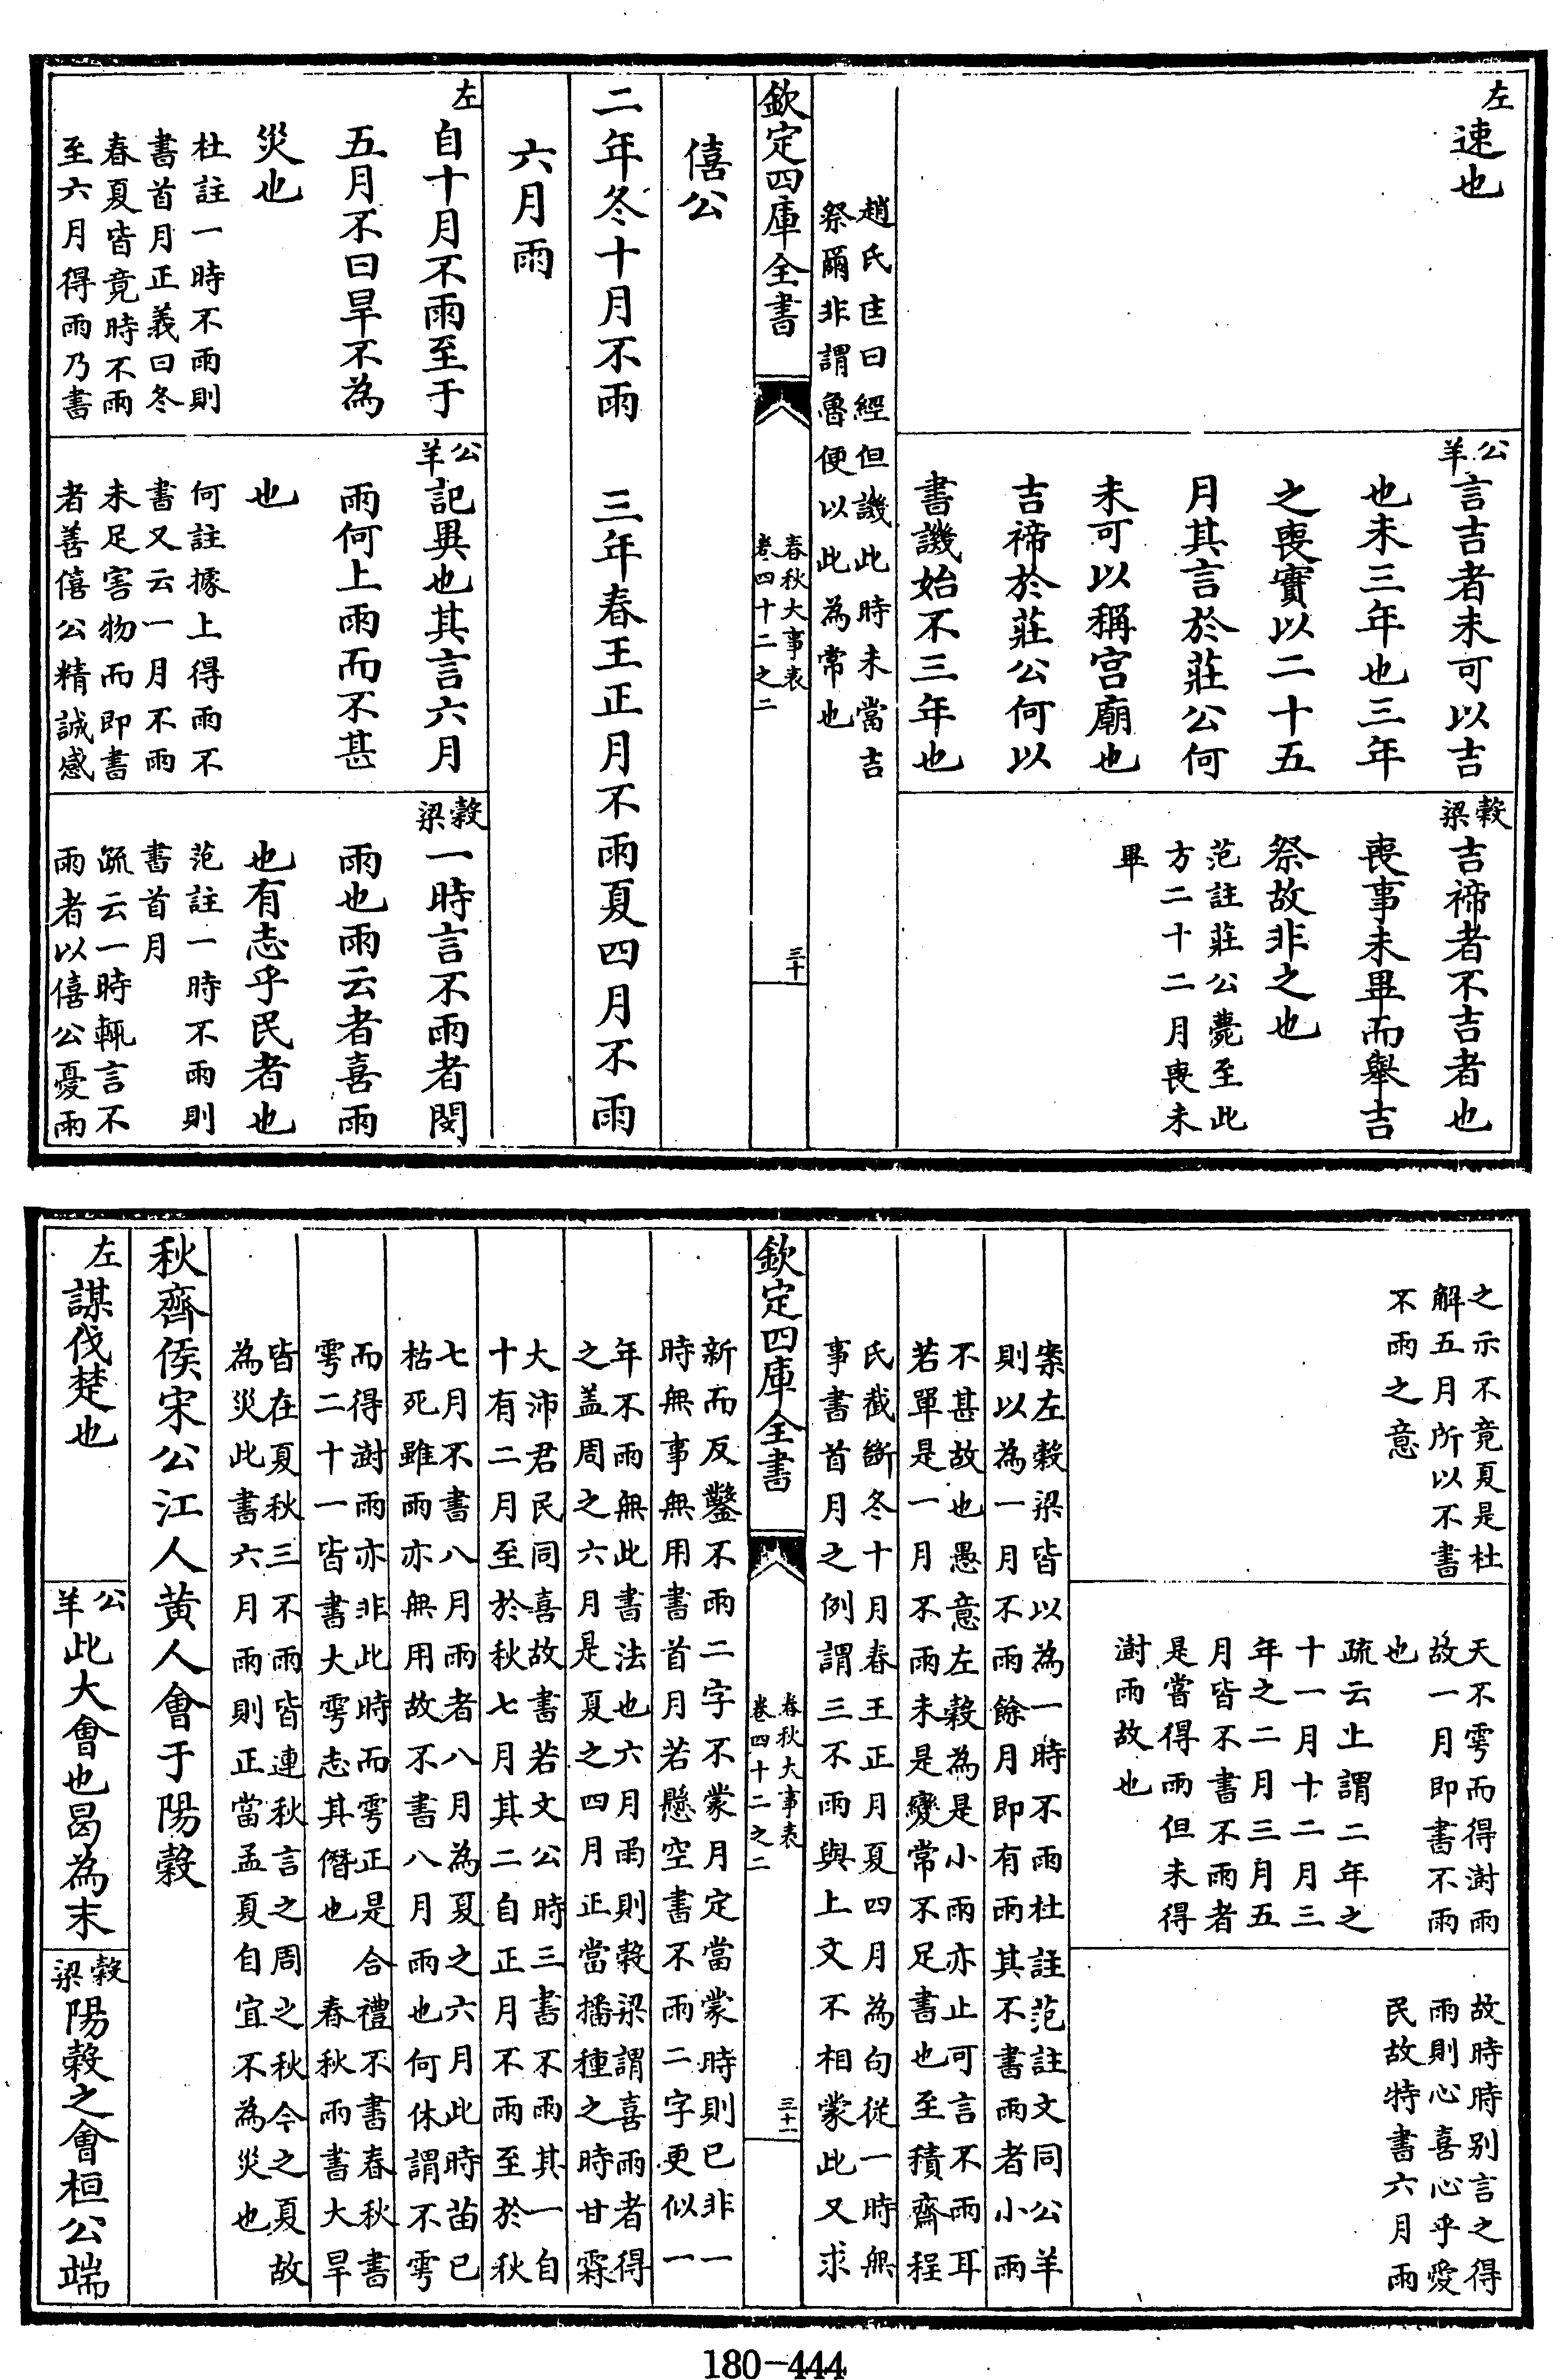 左
速也
公羊
言吉者未可以吉
也未三年也三年
之喪實以二十五
月其言於莊公何
未可以稱宫廟也
吉禘於莊公何以
書譏始不三年也
穀梁
吉禘者不吉者也
喪事未畢而舉吉
祭故非之也
范註莊公薨至此
方二十二月喪未
畢
趙氏匡曰經但譏此時未當吉
祭爾非謂魯便以此為常也
欽定四庫全書
春秋大事表
卷四十二之二
三十
僖公
二年冬十月不雨 三年春王正月不雨夏四月不雨
六月雨
左
自十月不雨至于
五月不曰旱不為
災也
杜註一時不雨則
書首月正義曰冬
春夏皆竟時不雨
至六月得雨乃書
公羊
記異也其言六月
雨何上雨而不甚
也
何註據上得雨不
書又云一月不雨
未足害物而即書
者善僖公精誠感
穀梁
一時言不雨者閔
雨也雨云者喜雨
也有志乎民者也
范註一時不雨則
書首月
疏云一時輒言不
雨者以僖公憂雨
之示不竟夏是杜
解五月所以不書
不雨之意
天不雩而得澍雨
故一月即書不雨
也
疏云上謂二年之
十一月十二月三
年之二月三月五
月皆不書不雨者
是當得雨但未得
澍雨故也
故時時别言之得
雨則心喜心乎愛
民故特書六月雨
案左穀梁皆以為一時不雨杜註范註文同公羊
則以為一月不雨餘月即有雨其不書雨者小雨
不甚故也愚意左穀為是小雨亦止可言不雨耳
若單是一月不雨未是變常不足書也至積齋程
氏截斷冬十月春王正月夏四月為句從一時無
事書首月之例謂三不雨與上文不相蒙此又求
欽定四庫全書
春秋大事表
卷四十二之二
三十一
新而反鑿不雨二字不蒙月定當蒙時則已非一
時無事無用書首月若懸空書不雨二字更似一
年不雨無此書法也六月雨則穀梁謂喜雨者得
之盖周之六月是夏之四月正當播種之時甘霖
大沛君民同喜故書若文公時三書不雨其一自
十有二月至於秋七月其二自正月不雨至於秋
七月不書八月雨者八月為夏之六月此時苗已
枯死雖雨亦無用故不書八月雨也何休謂不雩
而得澍雨亦非此時而雩正是合禮不書春秋書
雩二十一皆書大雩志其僭也 春秋雨書大旱
皆在夏秋三不雨皆連秋言之周之秋今之夏故
為災此書六月雨則正當孟夏自宜不為災也
秋齊侯宋公江人黄人會于陽穀
左
謀伐楚也
公羊
此大會也曷為末
穀梁
陽穀之會桓公端
180-444